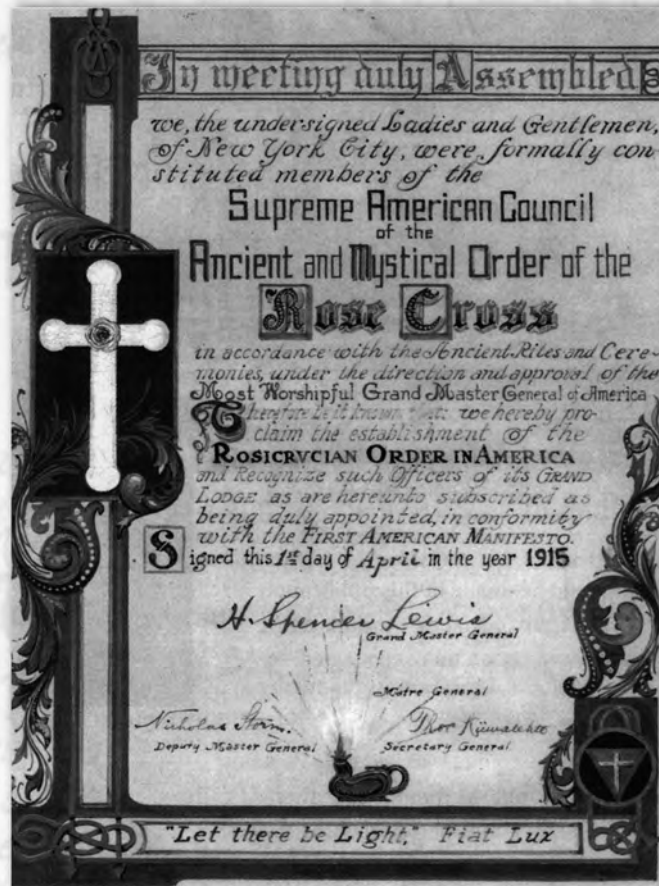 In meeting duly Assembled
we, the undersigned Ladies and Gentlemen,
of New York City, were formally con-
stituted members of the
Supreme American Council
of the
Ancient and Mystical Order of the
Rose Cross
in accordance with the Ancient Rites and Cere-
monies, under the direction and approval of the
Most Worshipful Grand Master General of America
Therefore be it known that: we hereby pro-
claim the establishment of the
ROSICRVCIAN ORDER IN AMERICA
and Recognize such Officers of its GRAND
LODGE as are hereunto subscribed as
being duly appointed, in conformity
with the FIRST AMERICAN MANIFESTO.
Signed this 1st day of April in the year 1915
H. Spencer Lewis
Grand Master General
Matre General
Nicholas Storm. Thor
Deputy Master General Secretary General
"Let there be Light," Fiat Lux